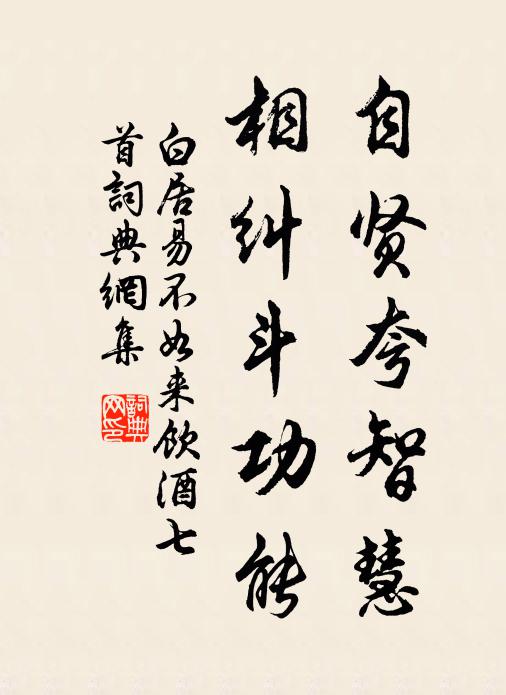 自贤夸智慧
相纠斗功能
白居易不如来饮酒七
首词典網集
詞典
网印